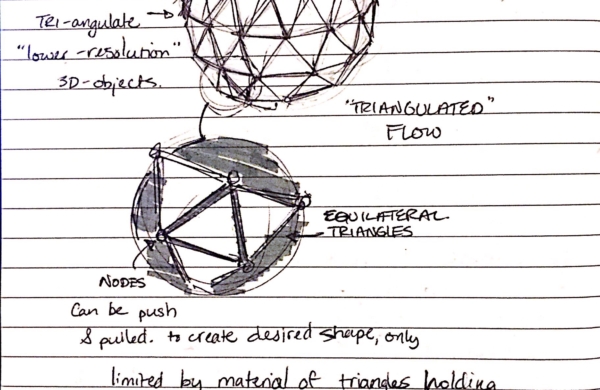 TRI-angulate
"lower-resolution"
3D-objects.
"TRIANGULATED"
FLOW
EQUILATERAL
TRIANGLES
NODES
Can be push
& pulled. to create desired shape, only
limited by material of triangles holding